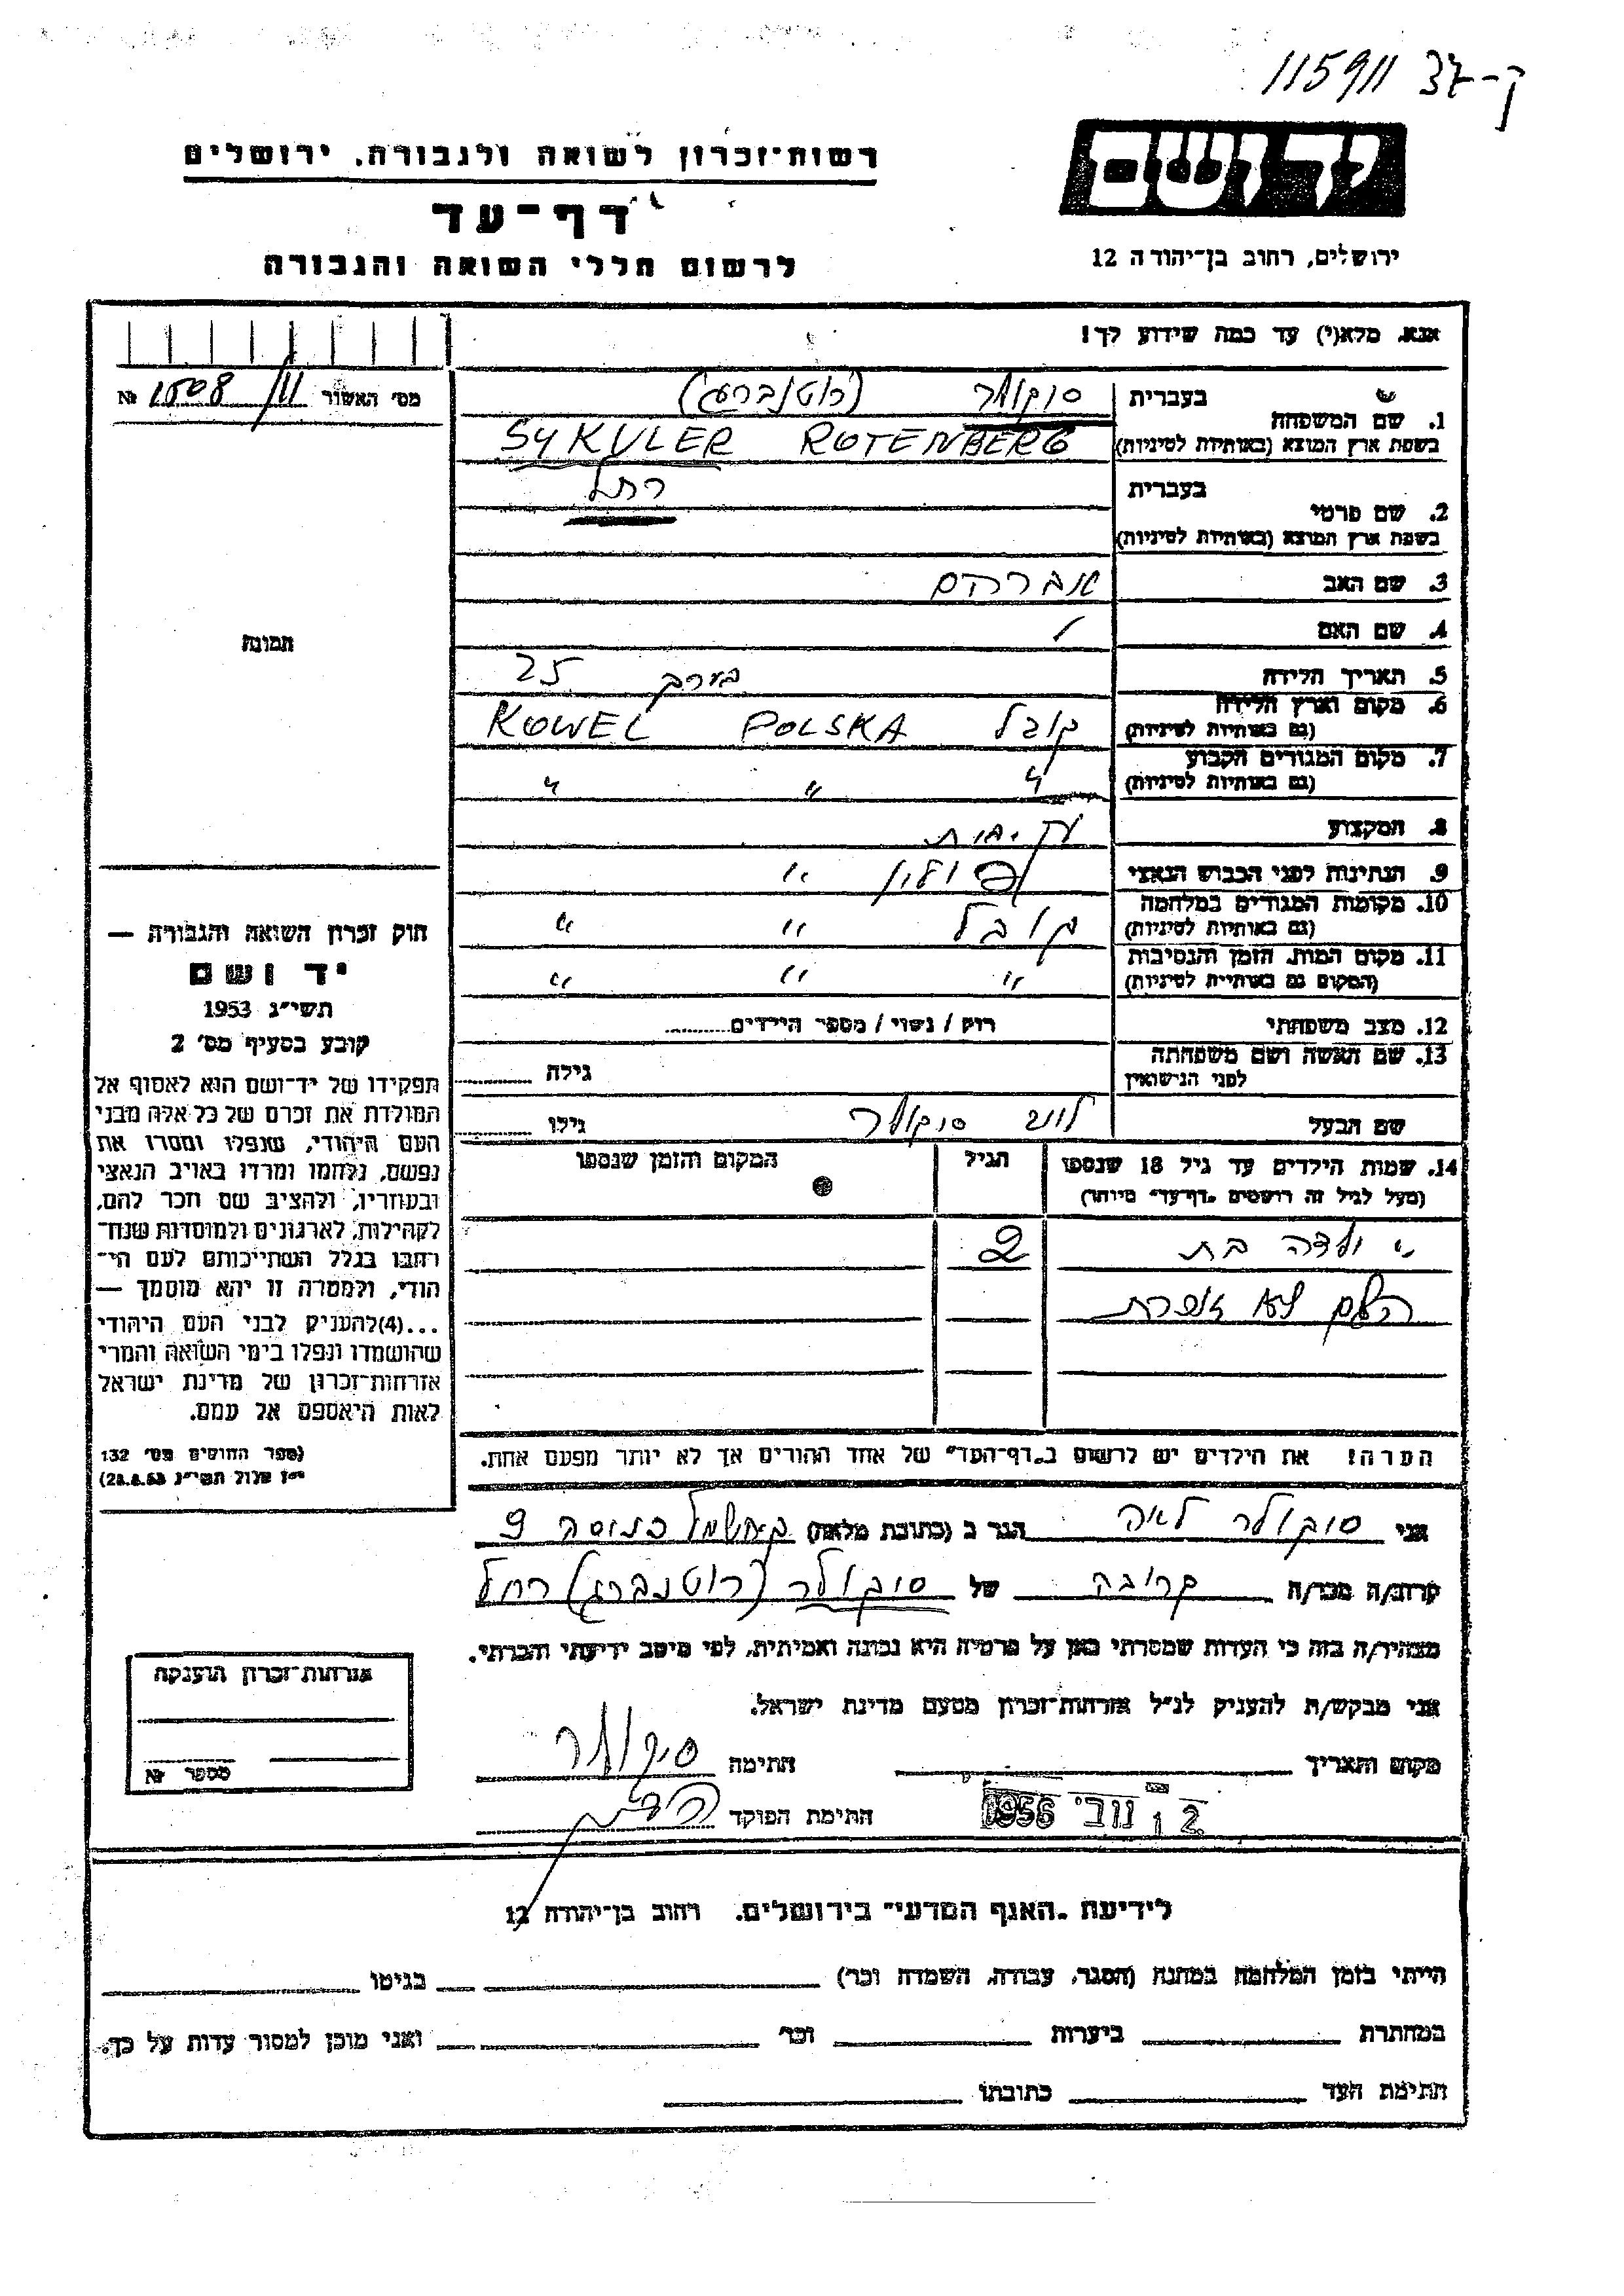 115911 ק-37
יד ושם
רשות-זכרון לשואה ולגבורה, ירושלים
דף-עד
לרשום חללי השואה והגבורה
ירושלים, רחוב בן-יהודה 12
אנא, מלא(י) עד כמה שידוע לך!
מס׳ האשור 11/1508 №
בעברית סוקולר (רוטנברג)
1. שם המשפחה
בשפת ארץ המוצא (באותיות לטיניות) SYKULER ROTENBERG
בעברית רחל
2. שם פרטי
בשפת ארץ המוצא (באותיות לטיניות)
3. שם האב אברהם
4. שם האם
תמונה
5. תאריך הלידה בערך 25
6. מקום וארץ הלידה קובל POLSKA KOWEL
(גם באותיות לטיניות)
7. מקום המגורים הקבוע " " "
(גם באותיות לטיניות)
8. המקצוע עק. בית
9. הנתינות לפני הכבוש הנאצי פולין "
10. מקומות המגורים במלחמה קובל " "
(גם באותיות לטיניות)
11. מקום המות, הזמן והנסיבות " " "
(המקום גם באותיות לטיניות)
12. מצב משפחתי רוק / נשוי / מספר הילדים
13. שם האשה ושם משפחתה גילה
לפני הנישואין
שם הבעל סוקולר גילו
14. שמות הילדים עד גיל 18 שנספו הגיל המקום והזמן שנספו
(מעל לגיל זה רושמים "דף-עד" מיוחד)
ילדה בת 2
השם לא זוכרת
הערה! את הילדים יש לרשום ב"דף-העד" של אחד ההורים אך לא יותר מפעם אחת.
חוק זכרון השואה והגבורה —
יד ושם
תשי״ג 1953
קובע בסעיף מס׳ 2
תפקידו של יד-ושם הוא לאסוף אל
המולדת את זכרם של כל אלה מבני
העם היהודי, שנפלו ומסרו את
נפשם, נלחמו ומרדו באויב הנאצי
ובעוזריו, ולהציב שם וזכר להם,
לקהילות, לארגונים ולמוסדות שנח-
רבו בגלל השתייכותם לעם הי-
הודי, ולמטרה זו יהא מוסמך —
...(4)להעניק לבני העם היהודי
שהושמדו ונפלו בימי השואה והמרי
אזרחות-זכרון של מדינת ישראל
לאות היאספם אל עמם.
(ספר החוקים מס׳ 132
י״ז אלול תשי״ג 28.8.53)
אני סוקולר לאה הגר ב (כתובת מלאה) 9
קרוב/ה מכר/ה קרובה של סוקולר (רוטנברג) רחל
מצהיר/ה בזה כי העדות שמסרתי כאן על פרטיה היא נכונה ואמיתית, לפי מיטב ידיעתי והכרתי.
אני מבקש/ת להעניק לנ״ל אזרחות-זכרון מטעם מדינת ישראל.
מקום ותאריך חתימה סיקולר
12 נוב׳ 1956 חתימת הפוקד
אזרחות-זכרון הוענקה
מספר №
לידיעת "האגף המדעי" בירושלים, רחוב בן-יהודה 12
הייתי בזמן המלחמה במחנה (הסגר, עבודה, השמדה וכו׳) בגיטו
במחתרת ביערות וכו׳ ואני מוכן למסור עדות על כך.
חתימת העד כתובתו